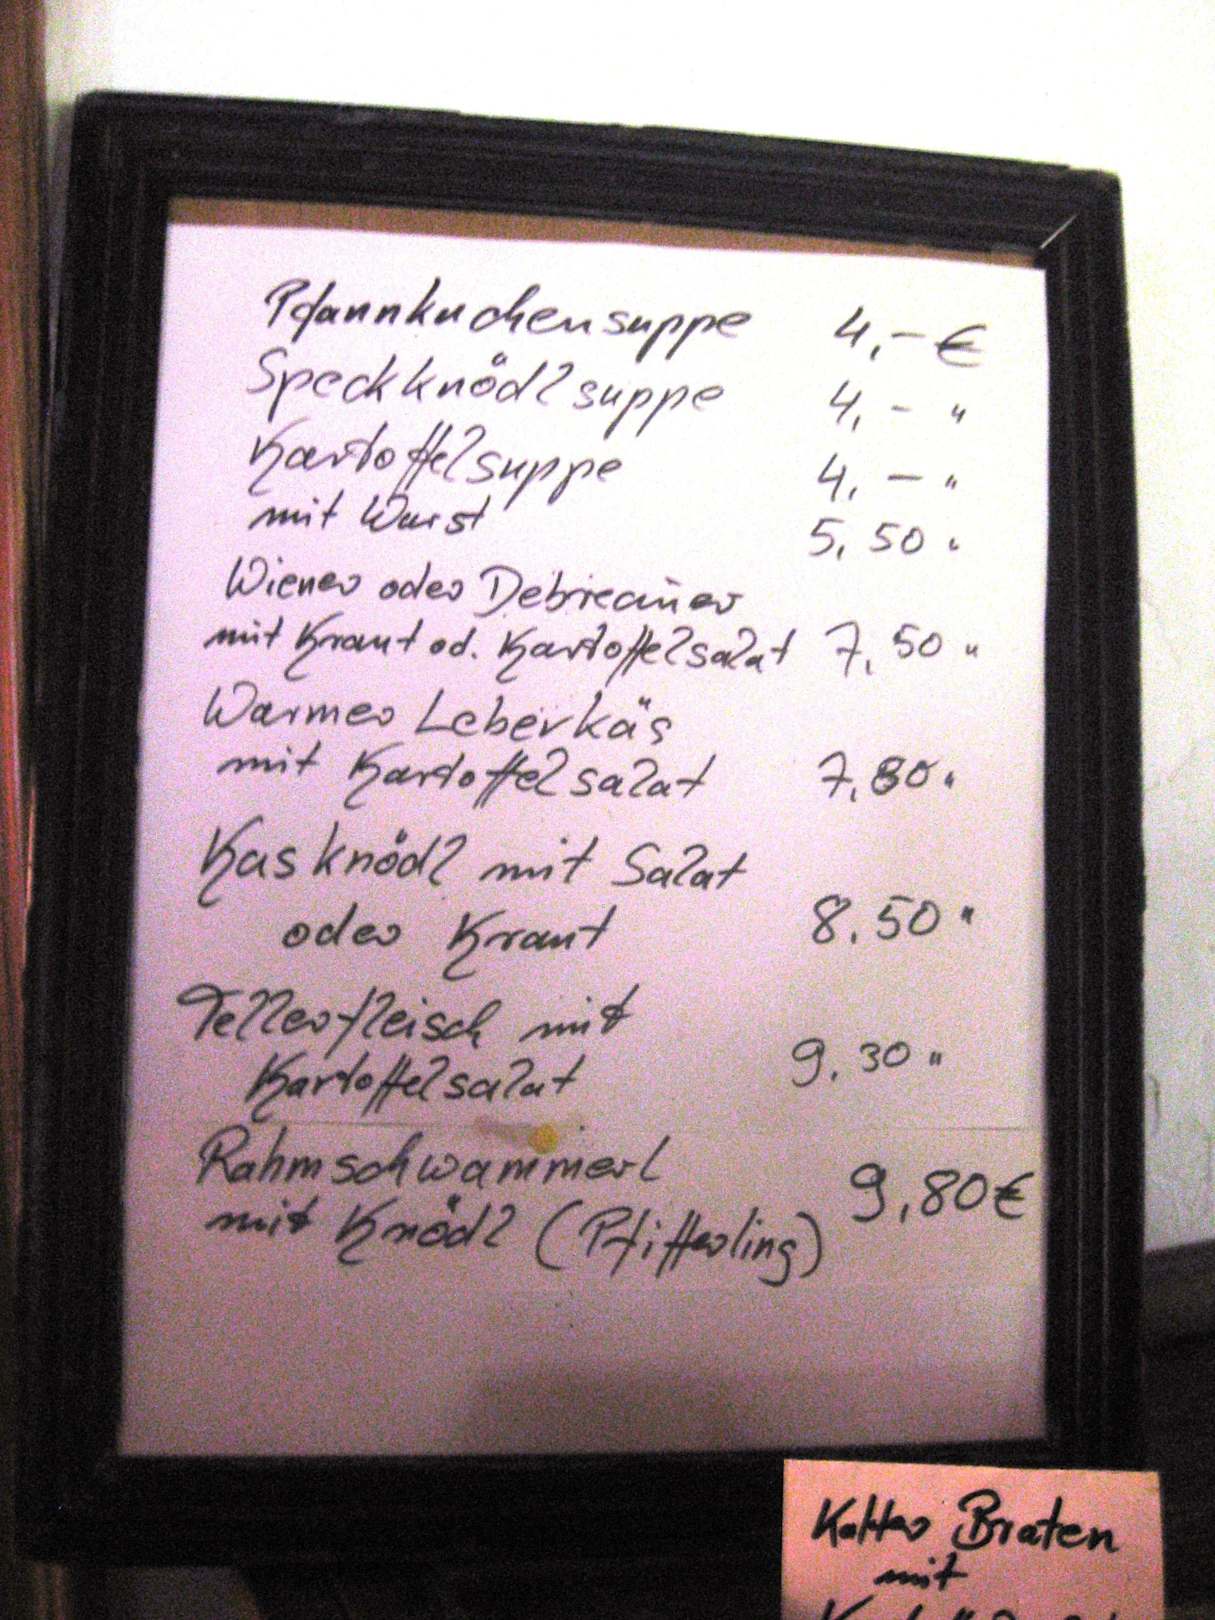 Pfannkuchensuppe 4,- €
Speckknödlsuppe 4,- "
Kartoffelsuppe 4,- "
mit Wurst 5,50 "
Wiener oder Debrieciner
mit Kraut od. Kartoffelsalat 7,50 "
Warmer Leberkäs
mit Kartoffelsalat 7,80 "
Kasknödl mit Salat
oder Kraut 8.50 "
Tellerfleisch mit
Kartoffelsalat 9.30 "
Rahmschwammerl
mit Knödl (Pfifferling) 9,80 €
Kalter Braten
mit